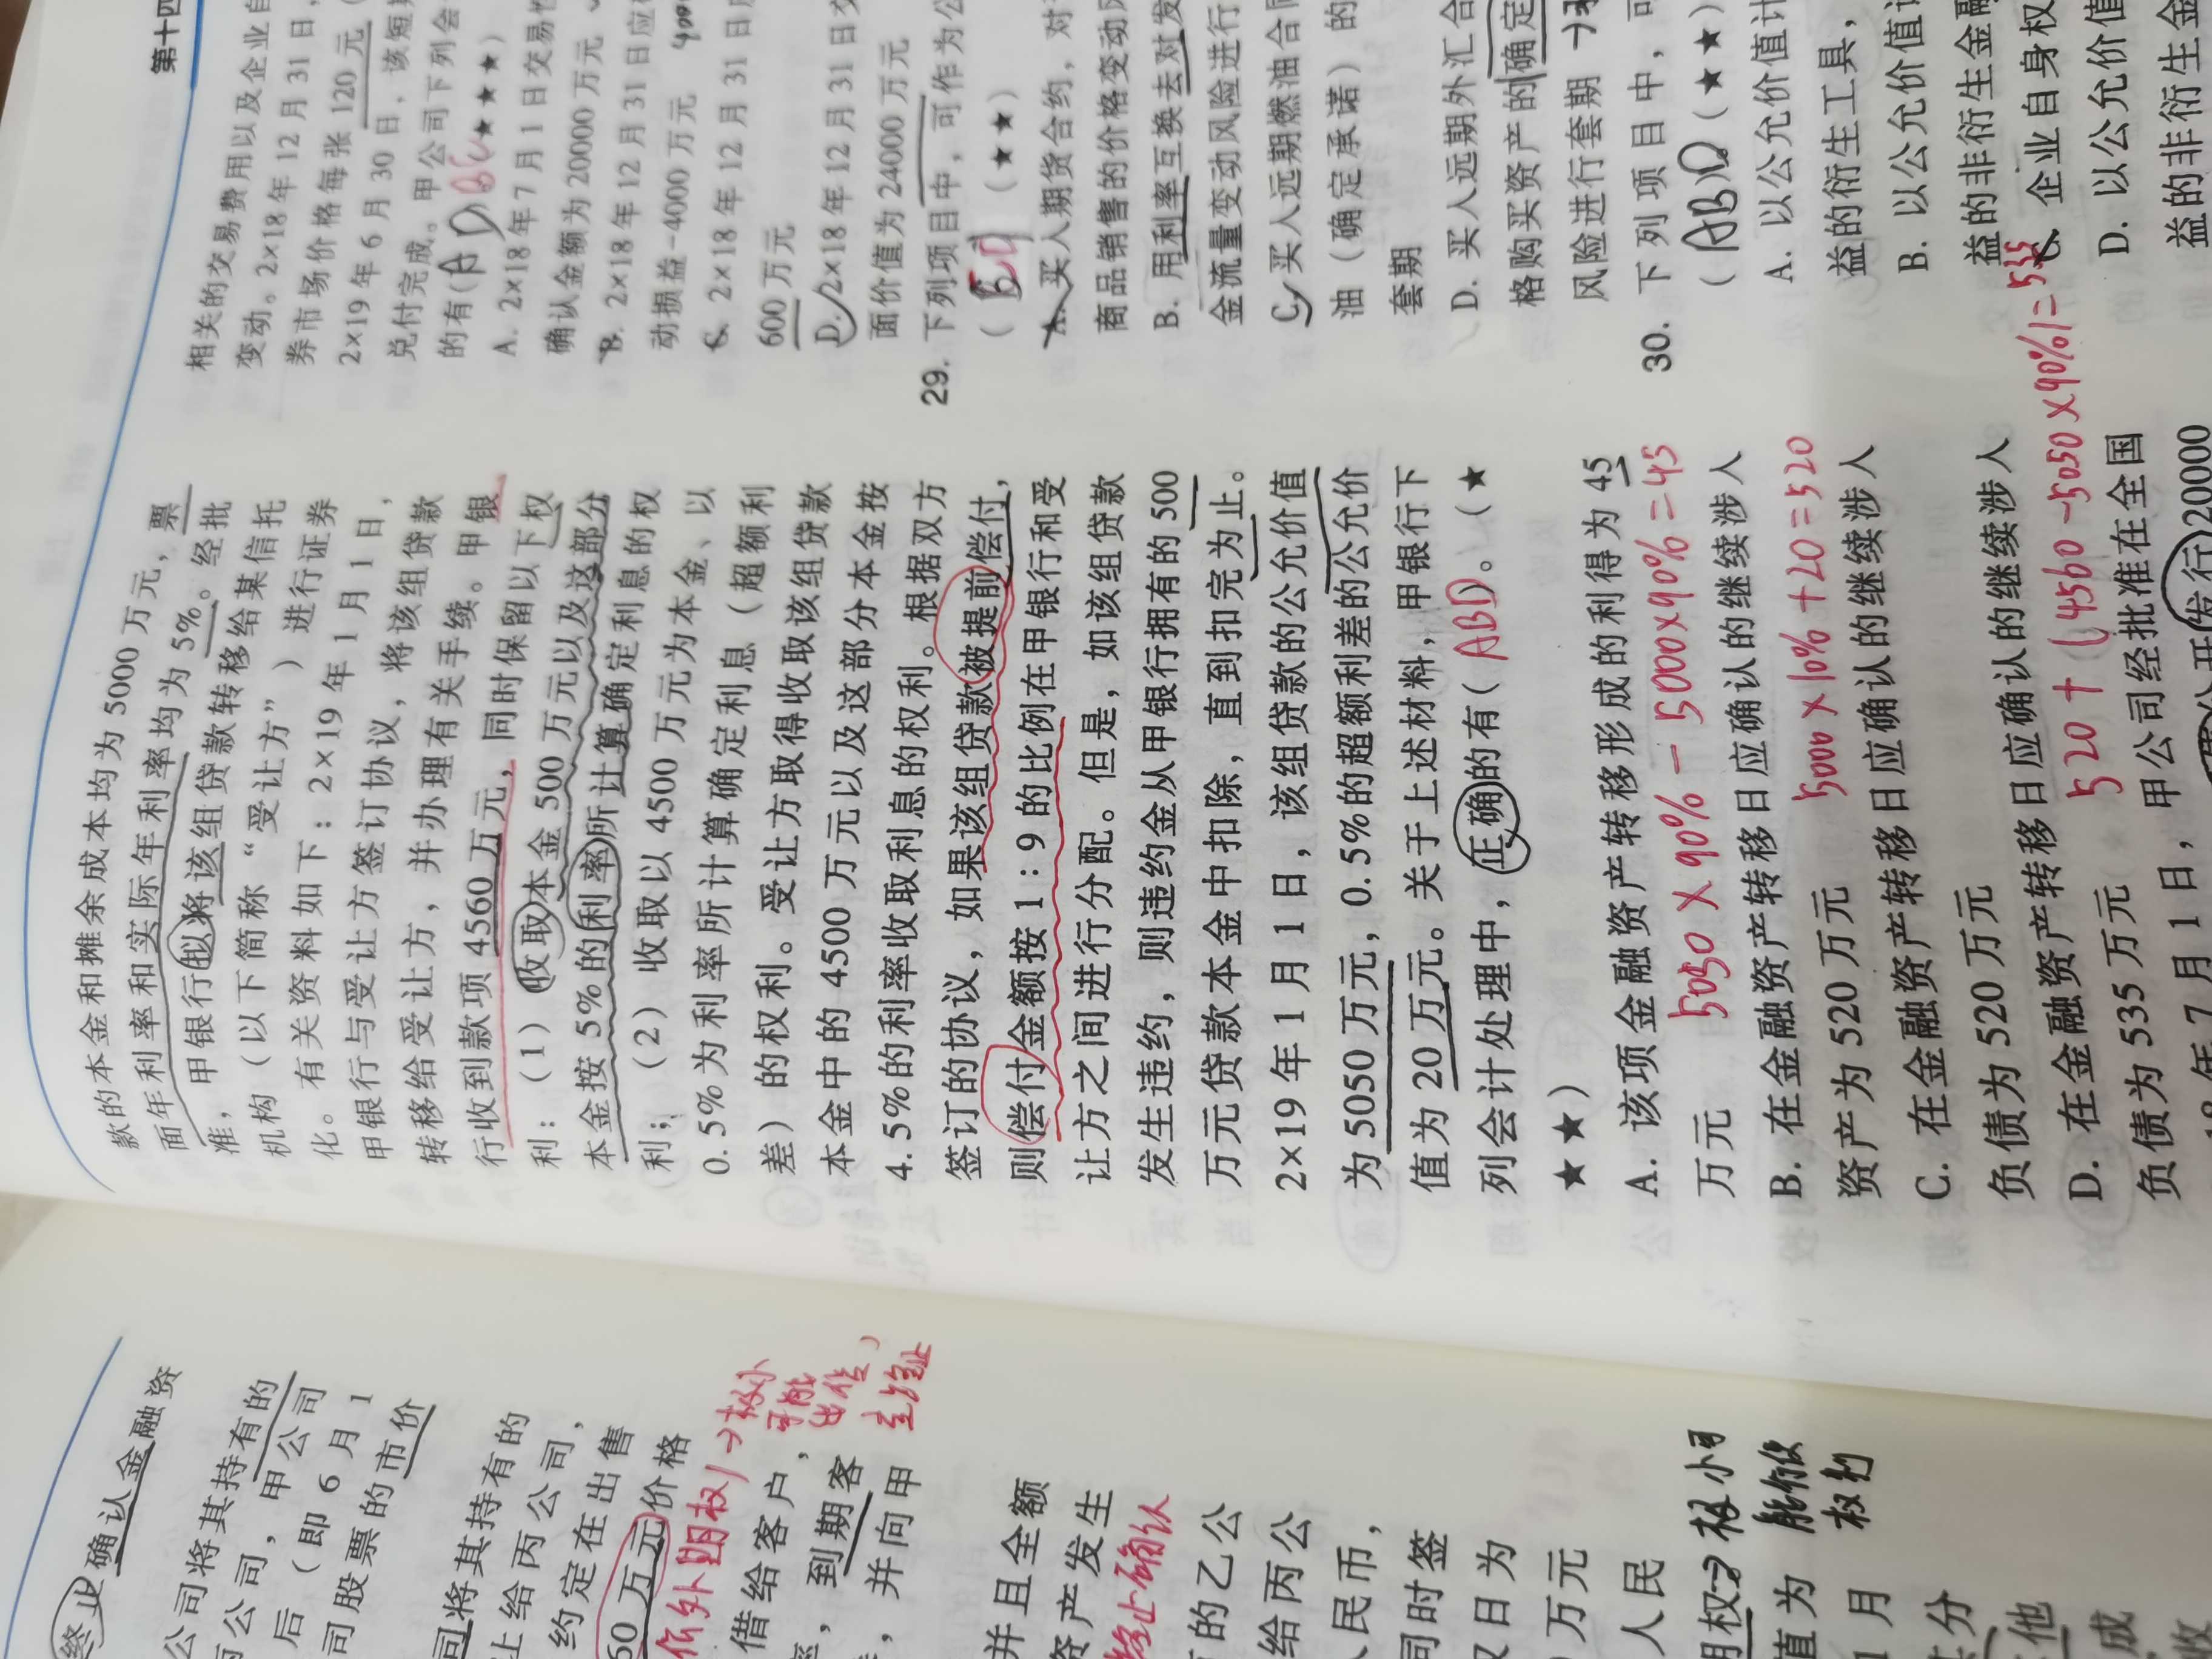 终止确认金融资
公司将其持有的
丙公司，甲公司
后（即6月1
司股票的市价
司将其持有的
上给丙公司，
约定在出售
60万元价格
价外期权)→极小
可能
出售，
借给客户，
到期客
，并向甲
并且全额
资产发生
终止确认
的乙公
给丙公
民币，
司同时签
权日为
万元
人民
期权→极小可
能行使
权利
值为
1月
款的本金和摊余成本均为5000万元，票
面年利率和实际年利率均为5%。经批
准，甲银行拟将该组贷款转移给某信托
机构（以下简称“受让方”）进行证券
化。有关资料如下：2×19年1月1日，
甲银行与受让方签订协议，将该组贷款
转移给受让方，并办理有关手续。甲银
行收到款项4560万元，同时保留以下权
利：（1）收取本金500万元以及这部分
本金按5%的利率所计算确定利息的权
利；（2）收取以4500万元为本金、以
0.5%为利率所计算确定利息（超额利
差）的权利。受让方取得收取该组贷款
本金中的4500万元以及这部分本金按
4.5%的利率收取利息的权利。根据双方
签订的协议，如果该组贷款被提前偿付，
则偿付金额按1：9的比例在甲银行和受
让方之间进行分配。但是，如该组贷款
发生违约，则违约金从甲银行拥有的500
万元贷款本金中扣除，直到扣完为止。
2×19年1月1日，该组贷款的公允价值
为5050万元，0.5%的超额利差的公允价
值为20万元。关于上述材料，甲银行下
列会计处理中，正确的有(ABD)。（★
★★）
A. 该项金融资产转移形成的利得为45
万元
5050×90%－5000×90%=45
B. 在金融资产转移日应确认的继续涉入
资产为520万元
5000×10%+20=520
C. 在金融资产转移日应确认的继续涉入
负债为520万元
D. 在金融资产转移日应确认的继续涉入
负债为535万元
520+(4560-5050×90%)=535
年7月1日，甲公司经批准在全国
公开发行20000
第十四
相关的交易费用以及企业自
变动。2×18年12月31日，
券市场价格每张120元（
2×19年6月30日，该短期
兑付完成。甲公司下列会
的有(AD)(★★★)
A. 2×18年7月1日交易性
确认金额为20000万元
B. 2×18年12月31日应确
动损益-4000万元
C. 2×18年12月31日
600万元
D. 2×18年12月31日交
面价值为24000万元
29. 下列项目中，可作为公
(BCD)(★★)
A. 买入期货合约，对
商品销售的价格变动风
B. 用利率互换去对发
金流量变动风险进行
C. 买入远期燃油合同
油（确定承诺）的
套期
D. 买入远期外汇合
格购买资产的确定
风险进行套期
30. 下列项目中，可
(ABD)(★★)
A. 以公允价值计
益的衍生工具，
B. 以公允价值计
益的非衍生金融
C. 企业自身权
D. 以公允价值
益的非衍生金